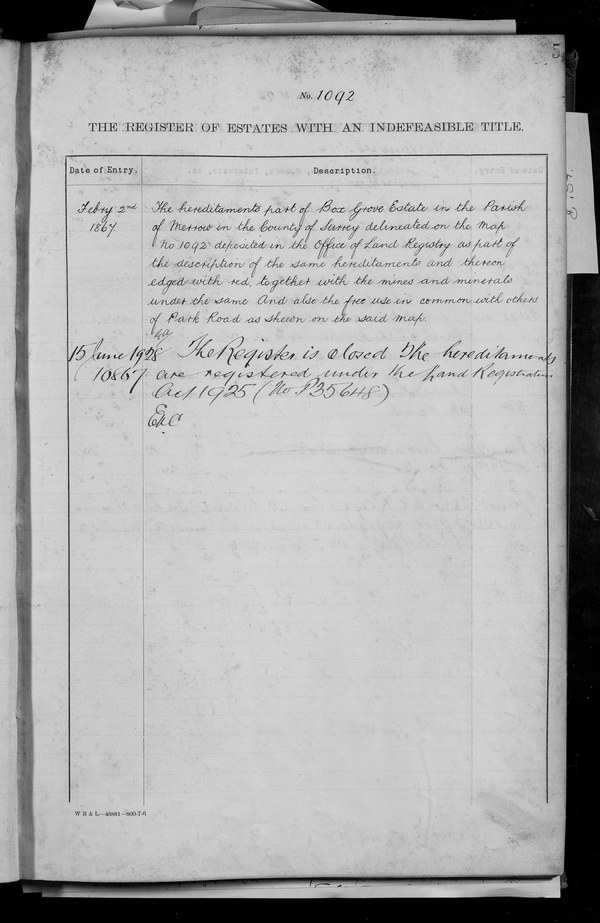 5
No. 1092
THE REGISTER OF ESTATES WITH AN INDEFEASIBLE TITLE.
Date of Entry. Description.
Febry 2nd The hereditaments part of Box Grove Estate in the Parish
1867 of Merrow in the County of Surrey delineated on the Map
No 1092 deposited in the Office of Land Registry as part of
the description of the same hereditaments and thereon
edged with red, together with the mines and minerals
under the same And also the free use in common with others
of Park Road as shewn on the said Map.
15 June 1928 The Register is closed The hereditaments
10867 are registered under the Land Registration
Act 1925 (No. P35648)
W B & L—48881—800-7-6